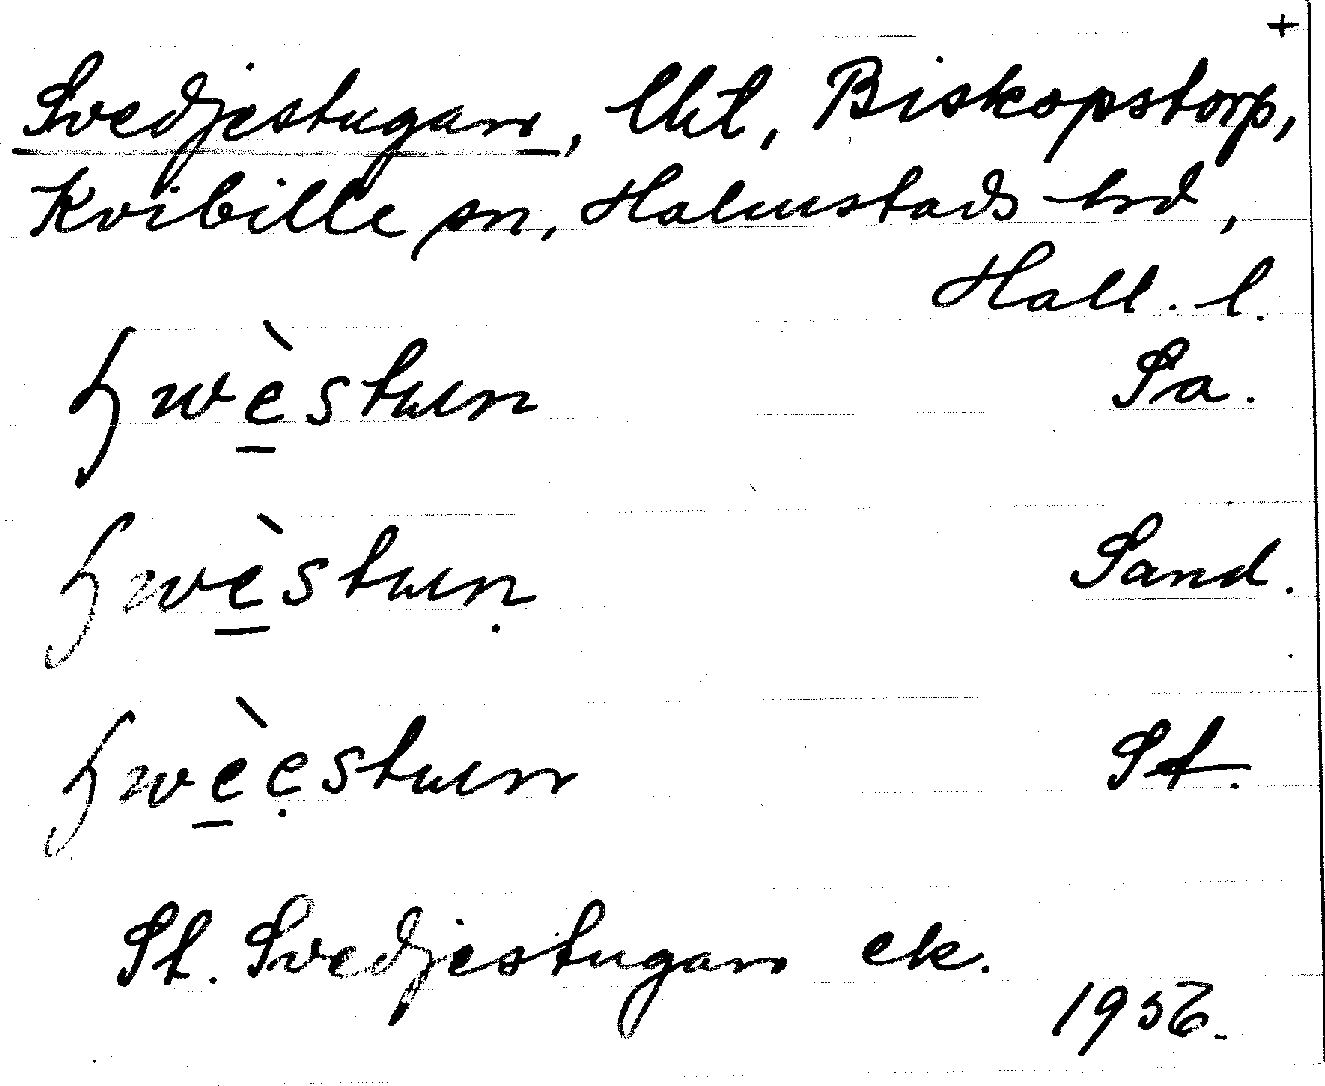 +
Svedjestugan, lht, Biskopstorp,
Kvibille sn, Halmstads hrd,
Hall. l.
ʒwèstuın Sa.
ʒwèstuıṇ Sand.
ʒwèẹstuın St.
St. Svedjestugan ek.
1956.